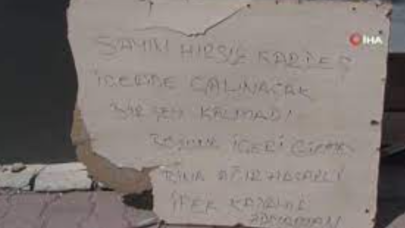 İHA
SAYIN HIRSIZ KARDEŞ
İÇERDE ÇALINACAK
BİR ŞEY KALMADI
İÇERİ GİRME
BİNA AĞIR HASARLI
İPEK KAYALAR